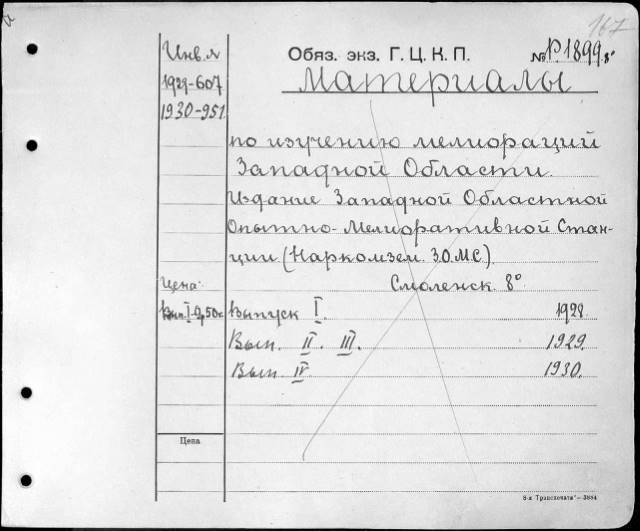 167
Инв. №
Обяз. экз. Г. Ц. К. П.
№ P1899 8°
1929-607
Материалы
1930-951
по изучению мелиораций
Западной Области.
Издание Западной Областной
Опытно-Мелиоративной Стан-
ции (Наркомзем. З.О.М.С.).
Цена:
Смоленск. 8°
Вып. I-0,50к
Выпуск I. 1928
Вып. II. III. 1929.
Вып. IV 1930.
Цена
8-я Транспечати"—3884